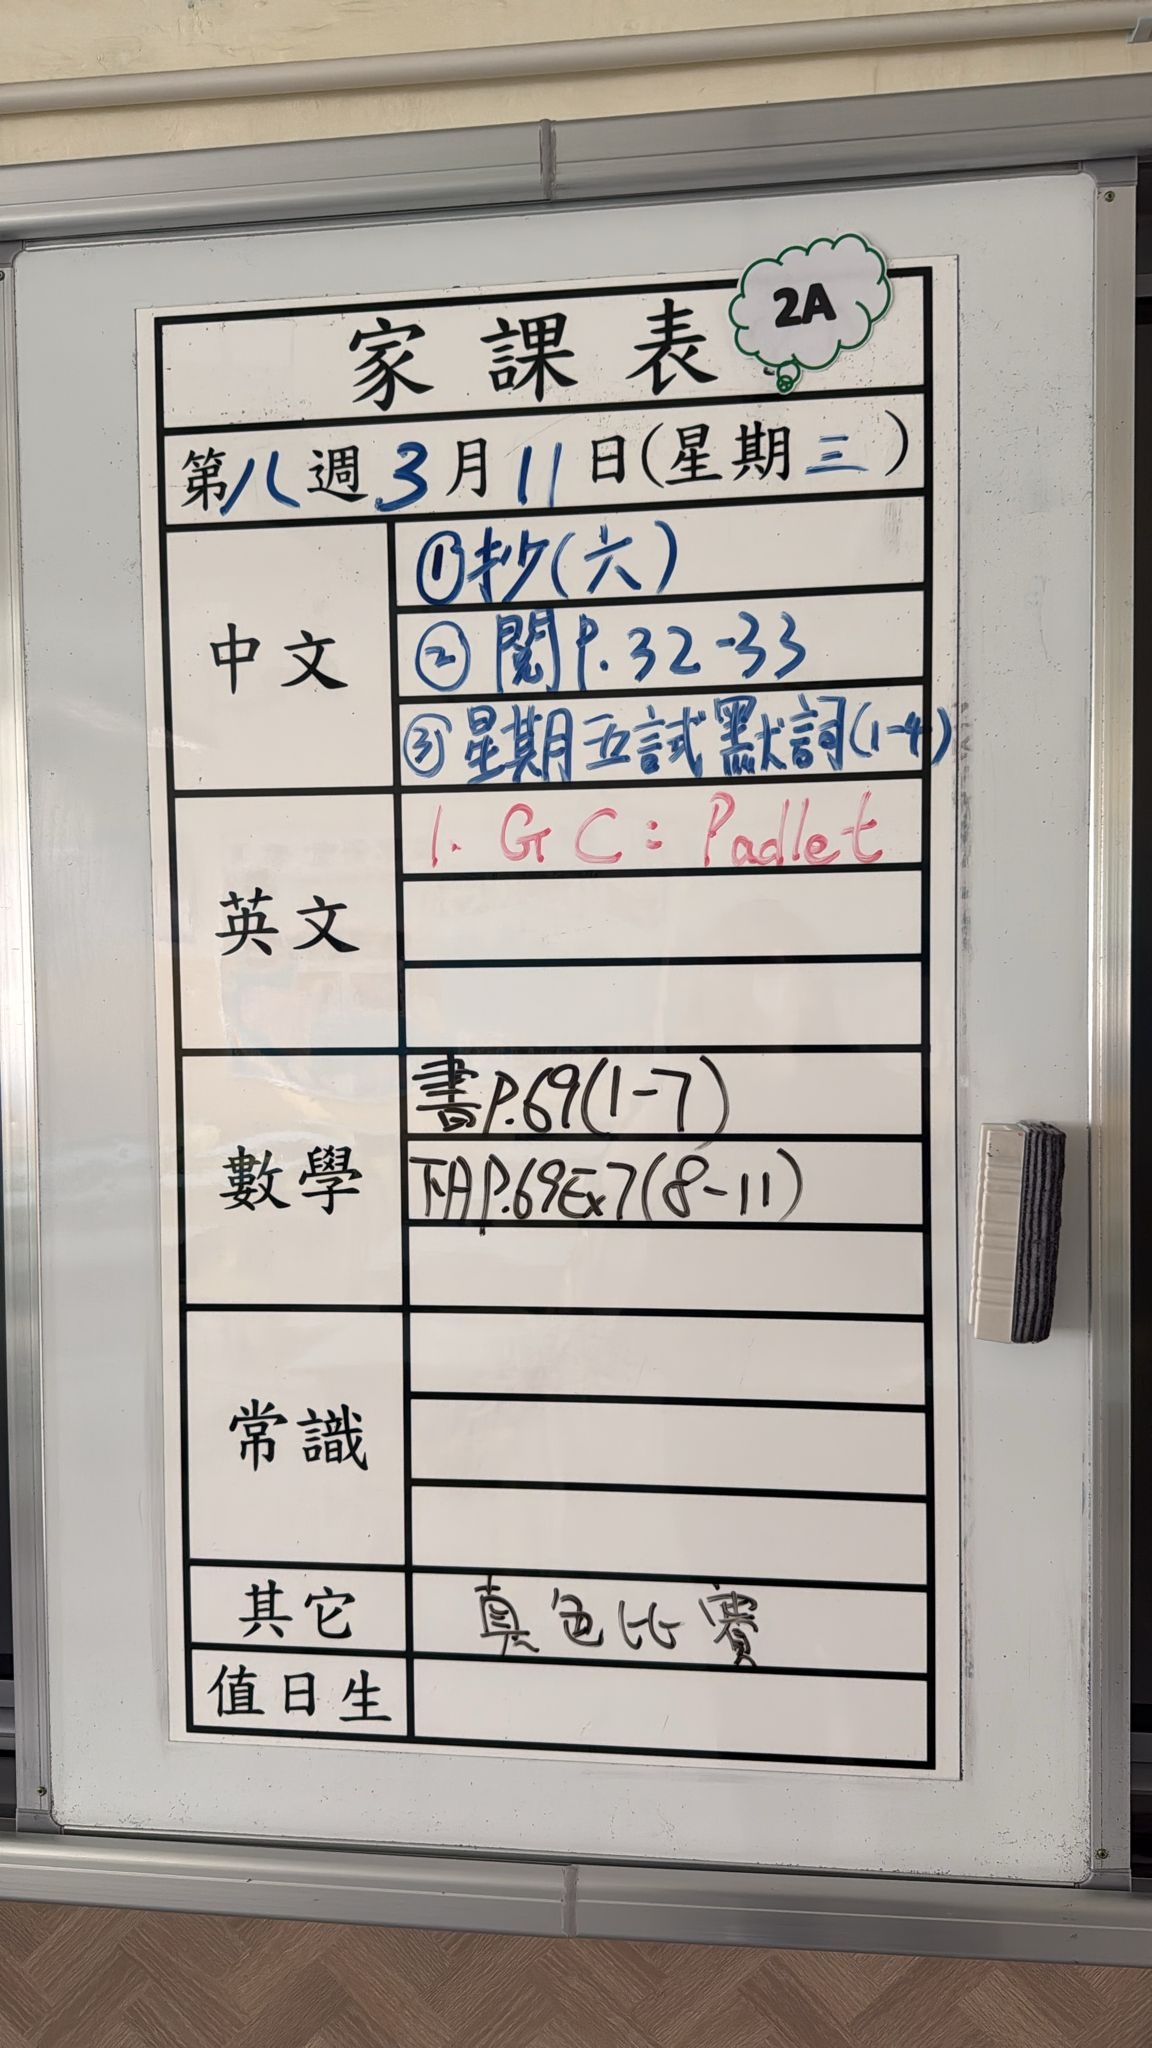 2A
家課表
第八週3月11日(星期三)
中文
①抄(六)
②閱P.32-33
③星期五試默詞(1-4)
英文
1. GC: Padlet
數學
書P.69(1-7)
下AP.69Ex7(8-11)
常識
其它
真色比賽
值日生